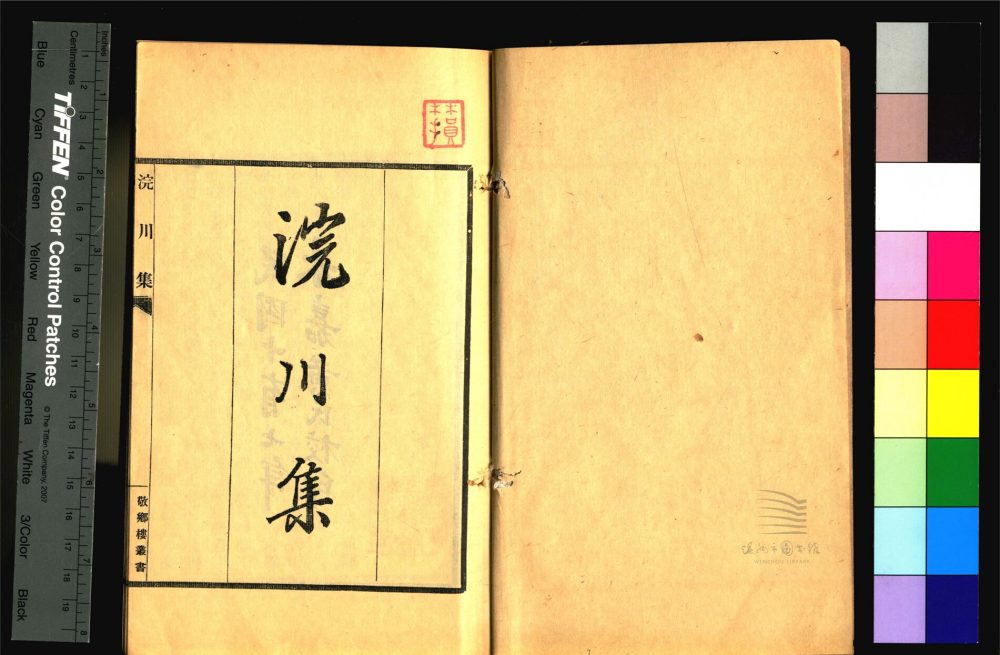 浣川集
浣川集
敬鄉樓叢書
溫州市圖書館
WENZHOU LIBRARY
Inches
Centimetres
TIFFEN Color Control Patches
© The Tiffen Company, 2007
Blue
Cyan
Green
Yellow
Red
Magenta
White
3/Color
Black
1 2 3 4 5 6 7 8
1 2 3 4 5 6 7 8 9 10 11 12 13 14 15 16 17 18 19